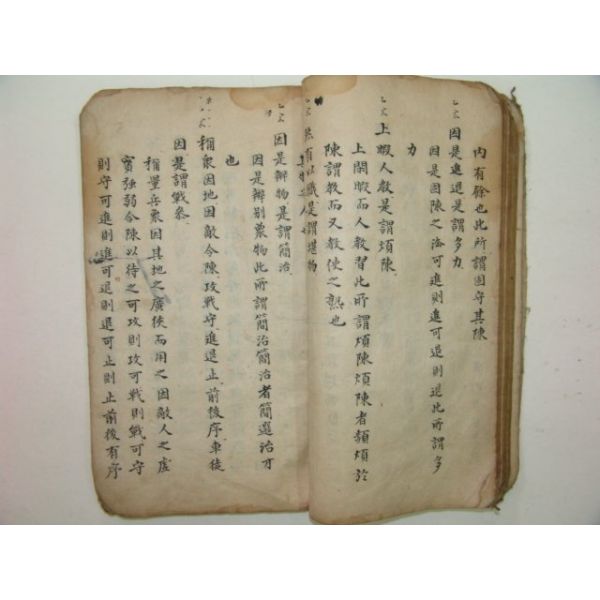 內有餘也此所謂固守其陳
因是進退是謂多力
因是固陳之法可進則進可退則退此所謂多
力
上暇人敎是謂煩陳
上閑暇而人敎習此所謂煩陳煩陳者頻煩於
陳謂敎而又敎使之熟也
然有以職是謂堪物
因是辨物是謂簡治
因是辨別衆物此所謂簡治簡治者簡選治才
也
稱衆因地因敵令陳攻戰守進退止前後序車徒
因是謂戰參
稱量兵衆因其地之廣狹而用之因敵人之虛
實强弱令陳以待之可攻則攻可戰則戰可守
則守可進則進可退則退可止則止前後有序